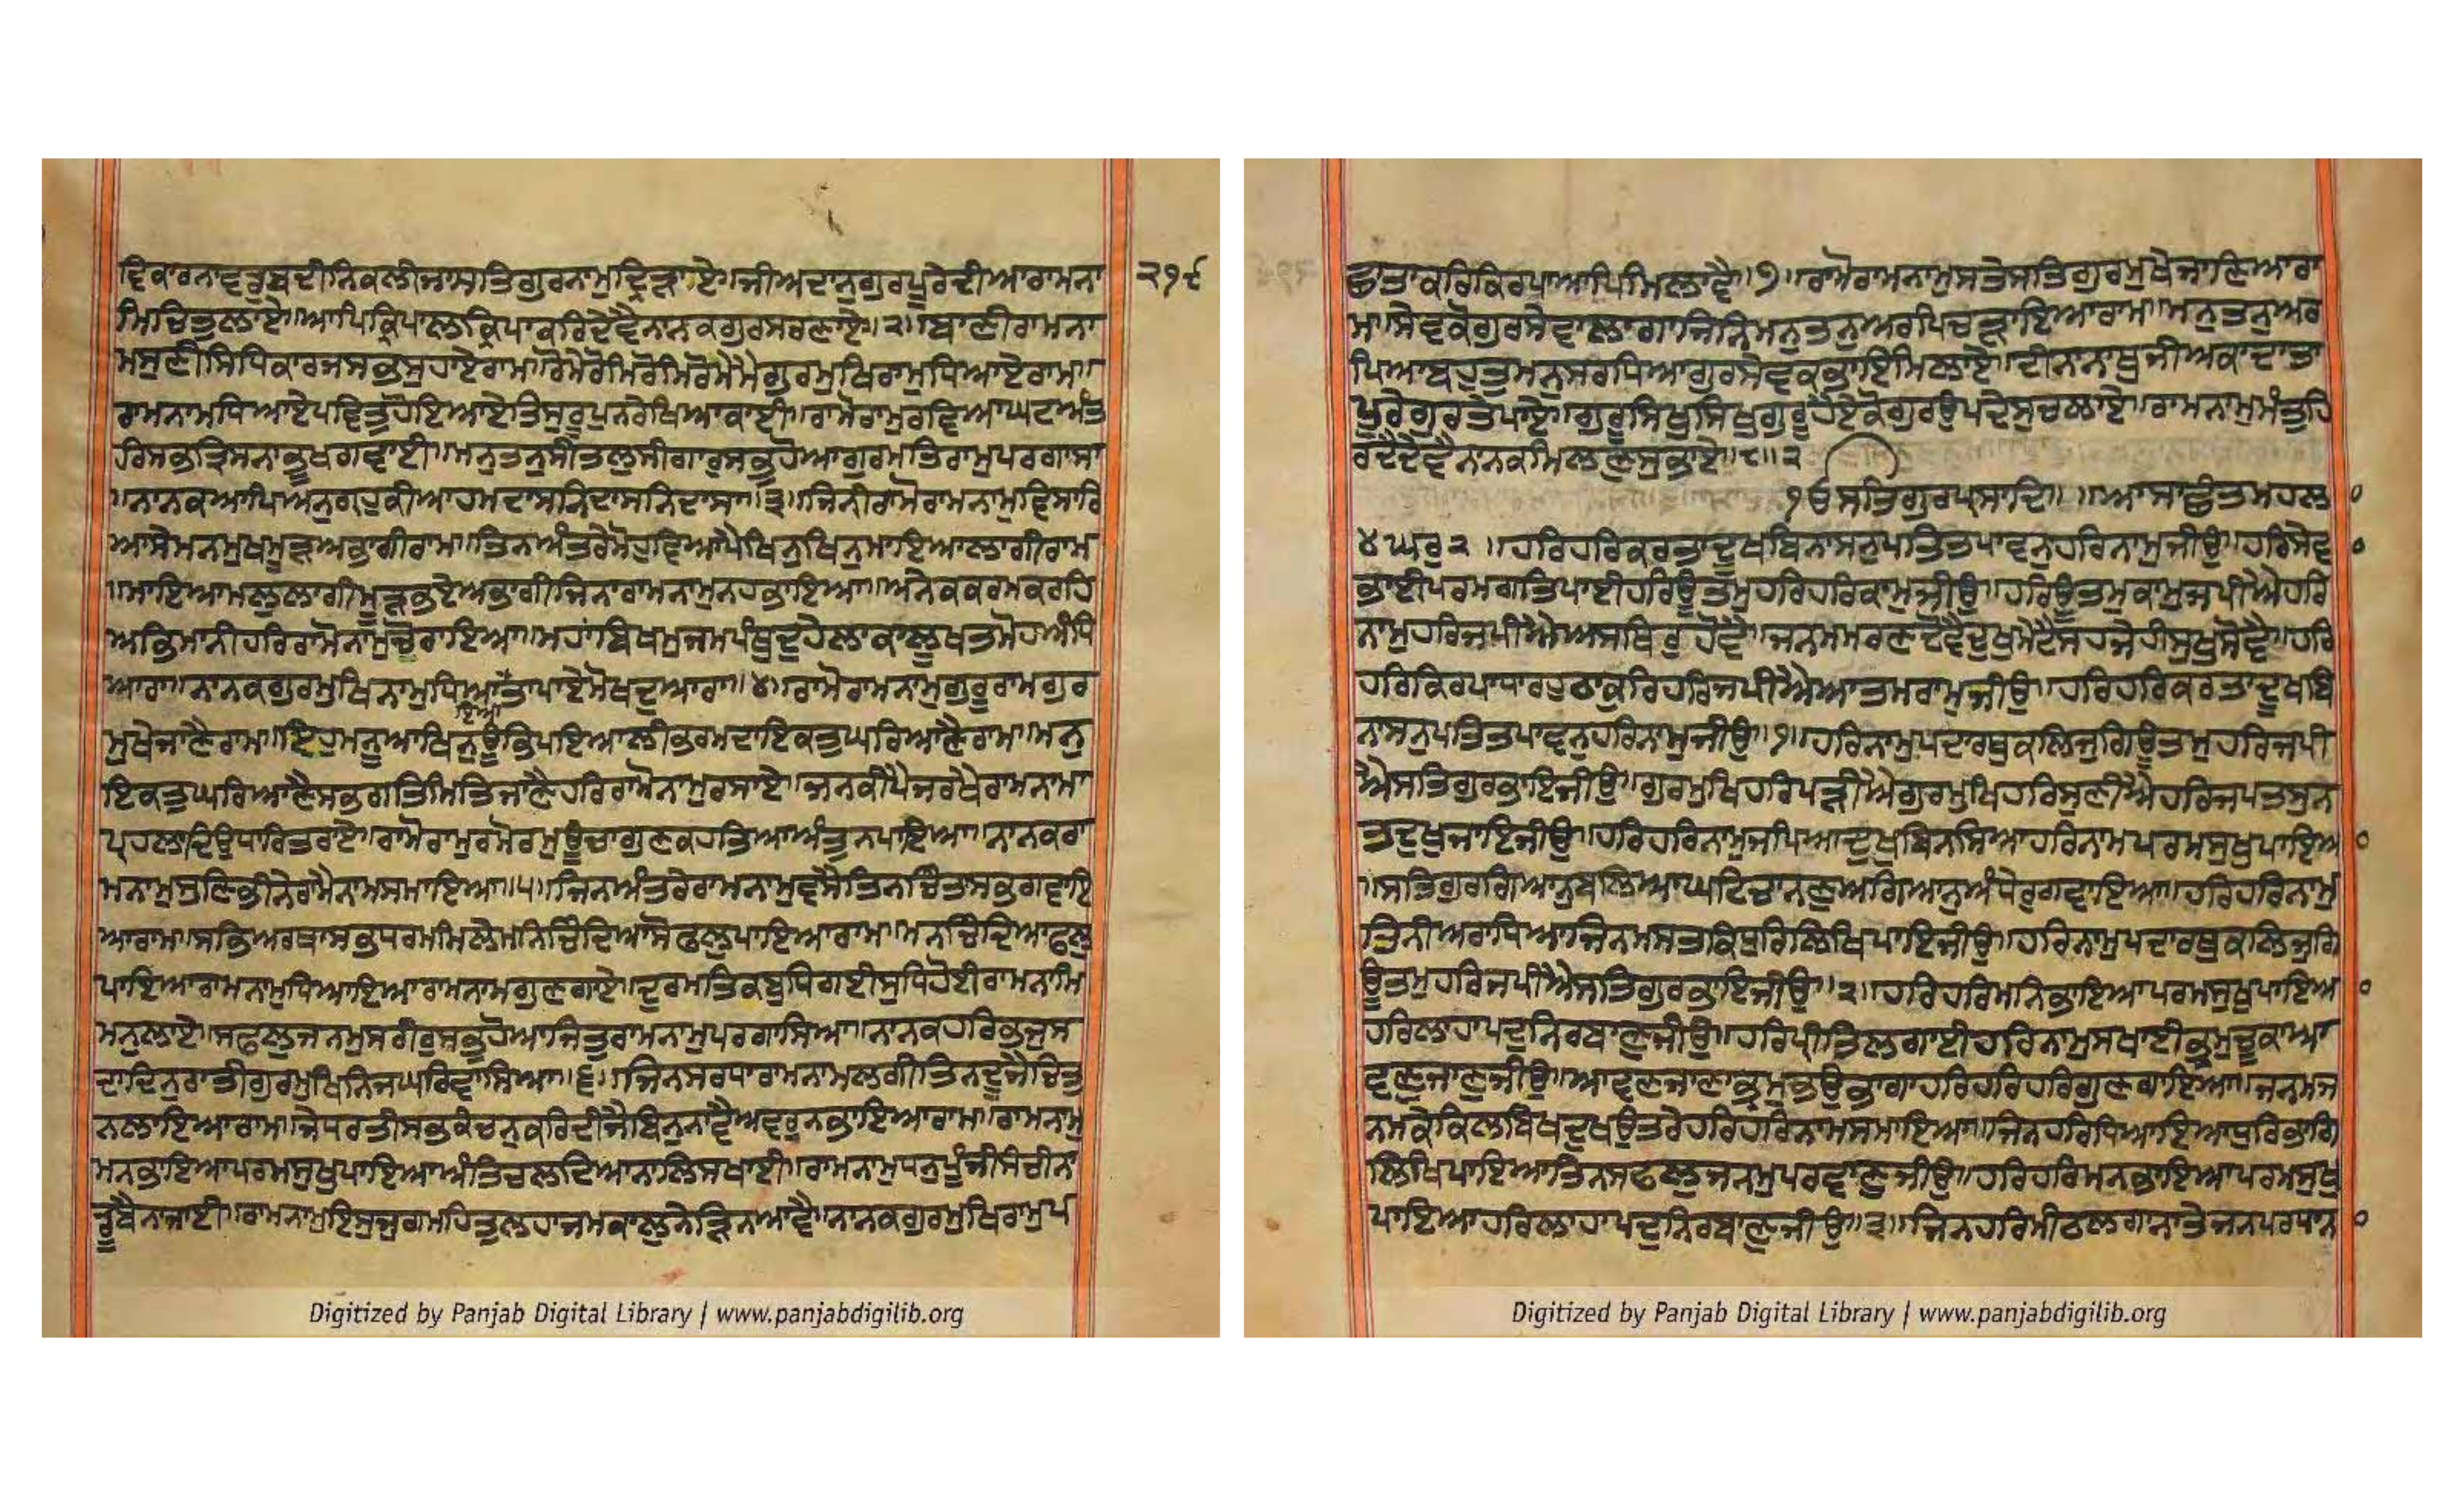 ਵਿਕਾਰਨਾਵਤੁਬਦੀਨਿਕਲੀਜਾਸਤਿਗੁਰਨਾਮੁਦ੍ਰਿੜਾਏ॥ਜੀਅਦਾਨੁਗੁਰਪੂਰੇਦੀਆਰਾਮਨਾ
੨੧੯
ਮਿਚਿਤੁਲਾਏ॥ਆਪਿਕ੍ਰਿਪਾਲਕ੍ਰਿਪਾਕਰਿਦੇਵੈਨਾਨਕਗੁਰਸਰਣਾਏ॥੨॥ਬਾਣੀਰਾਮਨਾ
ਮਸੁਣੀਸਿਧਿਕਾਰਜਸਭਿਸੁਹਾਏਰਾਮ॥ਰੋਮੇਰੋਮਿਰੋਮਿਰੋਮੇਮੈਗੁਰਮੁਖਿਰਾਮੁਧਿਆਏਰਾਮ॥
ਰਾਮਨਾਮਧਿਆਏਪਵਿਤੁਹੋਇਆਏਤਿਸੁਰੂਪੁਨਰੇਖਿਆਕਾਈ॥ਰਾਮੋਰਾਮੁਰਵਿਆਘਟਅੰਤ
ਰਿਸਭਤ੍ਰਿਸਨਾਭੂਖਗਵਾਈ॥ਮਨੁਤਨੁਸੀਤਲੁਸੀਗਾਰੁਸਭੁਹੋਆਗੁਰਮਤਿਰਾਮੁਪਰਗਾਸਾ
॥ਨਾਨਕਆਪਿਅਨੁਗ੍ਰਹੁਕੀਆਹਮਦਾਸਨਿਦਾਸਨਿਦਾਸਾ॥੩॥ਜਿਨੀਰਾਮੋਰਾਮਨਾਮੁਵਿਸਾਰਿ
ਆਸੇਮਨਮੁਖਮੂੜਅਭਾਗੀਰਾਮ॥ਤਿਨਅੰਤਰੇਮੋਹੁਵਿਆਪੈਖਿਨੁਖਿਨੁਮਾਇਆਲਾਗੀਰਾਮ
॥ਮਾਇਆਮਲੁਲਾਗੀਮੂੜਭਏਅਭਾਗੀਜਿਨਰਾਮਨਾਮੁਨਹਭਾਇਆ॥ਅਨੇਕਕਰਮਕਰਹਿ
ਅਭਿਮਾਨੀਹਰਿਰਾਮੋਨਾਮੁਚੋਰਾਇਆ॥ਮਹਾਬਿਖਮੁਜਮਪੰਥੁਦੁਹੇਲਾਕਾਲੂਖਤਮੋਹਅੰਧਿ
ਆਰਾ॥ਨਾਨਕਗੁਰਮੁਖਿਨਾਮੁਧਿਆਇਆਤਾਪਾਏਮੋਖਦੁਆਰਾ॥੪॥ਰਾਮੋਰਾਮਨਾਮੁਗੁਰੂਰਾਮਗੁਰ
ਮੁਖੇਜਾਣੈਰਾਮ॥ਇਹੁਮਨੂਆਖਿਨੁਊਭਿਪਇਆਲੀਭਰਮਦਾਇਕਤੁਘਰਿਆਣੈਰਾਮ॥ਮਨੁ
ਇਕਤੁਘਰਿਆਣੈਸਭਗਤਿਮਿਤਿਜਾਣੈਹਰਿਰਾਮੋਨਾਮੁਰਸਾਏ॥ਜਨਕੀਪੈਜਰਖੈਰਾਮਨਾਮਾ
ਪ੍ਰਹਲਾਦਿਉਧਾਰਿਤਰਾਏ॥ਰਾਮੋਰਾਮੁਰਮੋਰਮੁਊਚਾਗੁਣਕਹਤਿਆਅੰਤੁਨਪਾਇਆ॥ਨਾਨਕਰਾ
ਮਨਾਮੁਸੁਣਿਭੀਨੇਰਾਮੈਨਾਮਸਮਾਇਆ॥੫॥ਜਿਨਅੰਤਰੇਰਾਮਨਾਮੁਵਸੈਤਿਨਚਿੰਤਾਸਭਗਵਾਇ
ਆਰਾਮ॥ਸਭਿਅਰਥਾਸਭਧਰਮਮਿਲੇਮਨਿਚਿੰਦਿਆਸੋਫਲੁਪਾਇਆਰਾਮ॥ਮਨਚਿੰਦਿਆਫਲੁ
ਪਾਇਆਰਾਮਨਾਮੁਧਿਆਇਆਰਾਮਨਾਮਗੁਣਗਾਏ॥ਦੁਰਮਤਿਕਬੁਧਿਗਈਸੁਧਿਹੋਈਰਾਮਨਾਮਿ
ਮਨੁਲਾਏ॥ਸਫਲੁਜਨਮੁਸਰੀਰੁਸਭੁਹੋਆਜਿਤੁਰਾਮਨਾਮੁਪਰਗਾਸਿਆ॥ਨਾਨਕਹਰਿਭਜੁਸ
ਦਾਦਿਨੁਰਾਤੀਗੁਰਮੁਖਿਨਿਜਘਰਿਵਾਸਿਆ॥੬॥ਜਿਨਸਰਧਾਰਾਮਨਾਮਲਗੀਤਿਨਦੂਜੈਚਿਤੁ
ਨਲਾਇਆਰਾਮ॥ਜੇਧਰਤੀਸਭਕੰਚਨੁਕਰਿਦੀਜੈਬਿਨੁਨਾਵੈਅਵਰੁਨਭਾਇਆਰਾਮ॥ਰਾਮਨਾਮੁ
ਮਨਭਾਇਆਪਰਮਸੁਖੁਪਾਇਆਅੰਤਿਚਲਦਿਆਨਾਲਿਸਖਾਈ॥ਰਾਮਨਾਮੁਧਨੁਪੂੰਜੀਸੰਚੀਨਾ
ਡੂਬੈਨਾਜਾਈ॥ਰਾਮਨਾਮੁਇਸੁਜੁਗਮਹਿਤੁਲਹਾਜਮਕਾਲੁਨੇੜਿਨਆਵੈ॥ਨਾਨਕਗੁਰਮੁਖਿਰਾਮੁਪ
Digitized by Panjab Digital Library | www.panjabdigilib.org
ਛਾਤਾਕਰਿਕਿਰਪਾਆਪਿਮਿਲਾਵੈ॥੭॥ਰਾਮੋਰਾਮਨਾਮੁਸਤੇਸਤਿਗੁਰਮੁਖੇਜਾਣਿਆਰਾ
ਮ॥ਸੇਵਕੋਗੁਰਸੇਵਾਲਾਗਾਜਿਨਿਮਨੁਤਨੁਅਰਪਿਚੜਾਇਆਰਾਮ॥ਮਨੁਤਨੁਅਰ
ਪਿਆਬਹੁਤੁਮਨੁਸਰਧਿਆਗੁਰਸੇਵਕਭਾਇਮਿਲਾਏ॥ਦੀਨਾਨਾਥੁਜੀਅਕਾਦਾਤਾ
ਪੂਰੇਗੁਰਤੇਪਾਏ॥ਗੁਰੂਸਿਖੁਸਿਖੁਗੁਰੂਹੈਏਕੋਗੁਰਉਪਦੇਸੁਚਲਾਏ॥ਰਾਮਨਾਮੁਮੰਤੁਹਿ
ਰਦੈਦੇਵੈਨਾਨਕਮਿਲਣੁਸੁਭਾਏ॥੮॥੨
੧ੳਸਤਿਗੁਰਪ੍ਰਸਾਦਿ॥ ॥ਆਸਾਛੰਤਮਹਲਾ
੪ਘਰੁ੨॥ਹਰਿਹਰਿਕਰਤਾਦੂਖਬਿਨਾਸਨੁਪਤਿਤਪਾਵਨੁਹਰਿਨਾਮੁਜੀਉ॥ਹਰਿਸੇਵ
ਭਾਈਪਰਮਗਤਿਪਾਈਹਰਿਊਤਮੁਹਰਿਹਰਿਕਾਮੁਜੀਉ॥ਹਰਿਊਤਮੁਕਾਮੁਜਪੀਐਹਰਿ
ਨਾਮੁਹਰਿਜਪੀਐਅਸਥਿਰੁਹੋਵੈ॥ਜਨਮਮਰਣਦੋਵੈਦੁਖਮੇਟੈਸਹਜੇਹੀਸੁਖੁਸੋਵੈ॥ਹਰਿ
ਹਰਿਕਿਰਪਾਧਾਰਹੁਠਾਕੁਰਿਹਰਿਜਪੀਐਆਤਮਰਾਮੁਜੀਉ॥ਹਰਿਹਰਿਕਰਤਾਦੂਖਬਿ
ਨਾਸਨੁਪਤਿਤਪਾਵਨੁਹਰਿਨਾਮੁਜੀਉ॥੧॥ਹਰਿਨਾਮੁਪਦਾਰਥੁਕਲਿਜੁਗਿਊਤਮੁਹਰਿਜਪੀ
ਐਸਤਿਗੁਰਭਾਇਜੀਉ॥ਗੁਰਮੁਖਿਹਰਿਪੜੀਐਗੁਰਮੁਖਿਹਰਿਸੁਣੀਐਹਰਿਜਪਤਸੁਨ
ਤਦੁਖੁਜਾਇਜੀਉ॥ਹਰਿਹਰਿਨਾਮੁਜਪਿਆਦੁਖੁਬਿਨਸਿਆਹਰਿਨਾਮਪਰਮਸੁਖੁਪਾਇਆ
॥ਸਤਿਗੁਰਗਿਆਨੁਬਲਿਆਘਟਿਚਾਨਣੁਅਗਿਆਨੁਅੰਧੇਰੁਗਵਾਇਆ॥ਹਰਿਹਰਿਨਾਮੁ
ਤਿਨੀਅਰਾਧਿਆਜਿਨਮਸਤਕਿਧੁਰਿਲਿਖਿਪਾਇਜੀਉ॥ਹਰਿਨਾਮੁਪਦਾਰਥੁਕਲਿਜੁਗਿ
ਊਤਮੁਹਰਿਜਪੀਐਸਤਿਗੁਰਭਾਇਜੀਉ॥੨॥ਹਰਿਹਰਿਮਨਿਭਾਇਆਪਰਮਸੁਖੁਪਾਇਆ
ਹਰਿਲਾਹਾਪਦੁਨਿਰਬਾਣੁਜੀਉ॥ਹਰਿਪ੍ਰੀਤਿਲਗਾਈਹਰਿਨਾਮੁਸਖਾਈਭ੍ਰਮੁਚੂਕਾਆ
ਵਣੁਜਾਣੁਜੀਉ॥ਆਵਣਜਾਣਾਭ੍ਰਮੁਭਉਭਾਗਾਹਰਿਹਰਿਹਰਿਗੁਣਗਾਇਆ॥ਜਨਮਜ
ਨਮਕੇਕਿਲਵਿਖਦੁਖਉਤਰੇਹਰਿਹਰਿਨਾਮਸਮਾਇਆ॥ਜਿਨਹਰਿਧਿਆਇਆਧੁਰਿਭਾਗਿ
ਲਿਖਿਪਾਇਆਤਿਨਸਫਲੁਜਨਮੁਪਰਵਾਣੁਜੀਉ॥ਹਰਿਹਰਿਮਨਭਾਇਆਪਰਮਸੁਖੁ
ਪਾਇਆਹਰਿਲਾਹਾਪਦੁਨਿਰਬਾਣੁਜੀਉ॥੩॥ਜਿਨਹਰਿਮੀਠਲਗਾਨਾਤੇਜਨਪਰਧਾਨ
Digitized by Panjab Digital Library | www.panjabdigilib.org